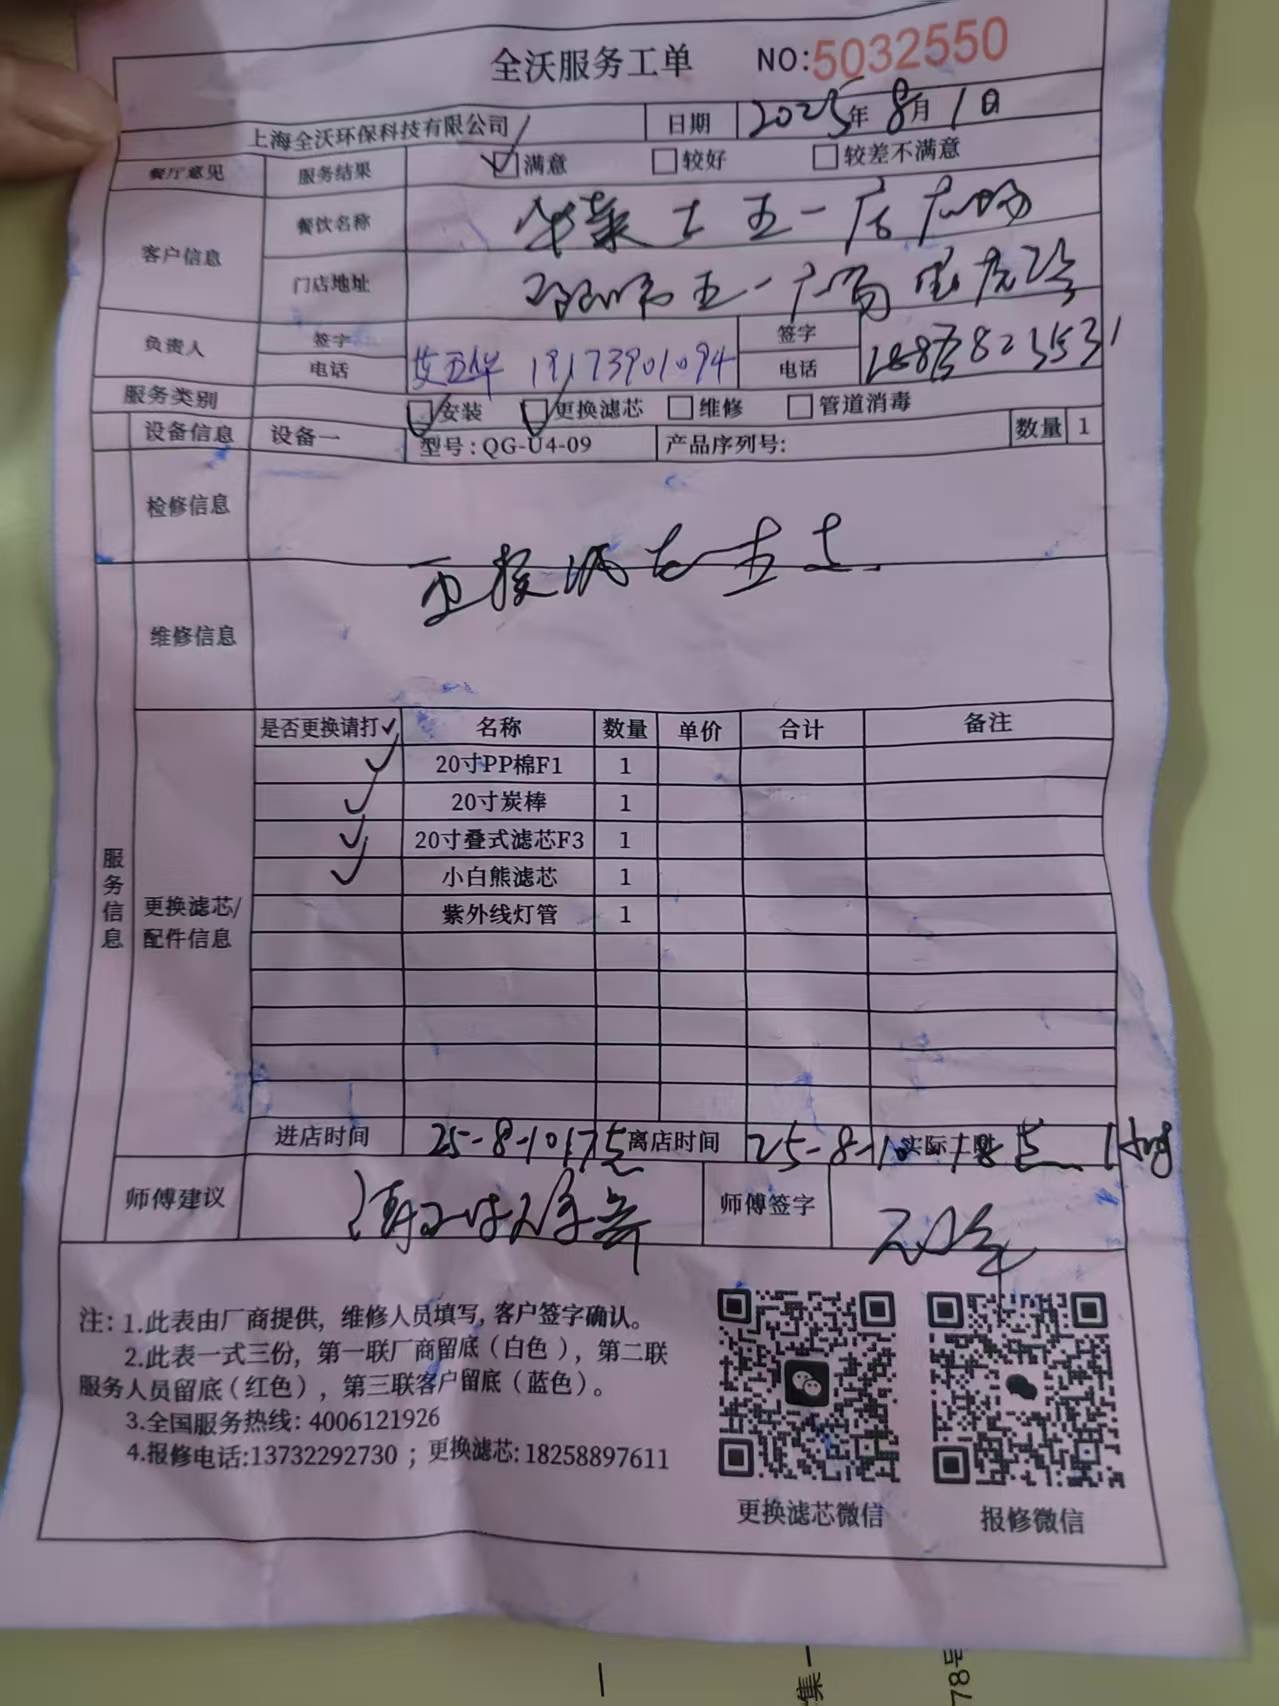 全沃服务工单 NO:5032550
上海全沃环保科技有限公司 日期 2025年8月1日
餐厅意见 服务结果 满意 较好 较差不满意
客户信息 餐饮名称 五一店
门店地址 五一广场
负责人 签字 签字
电话 19173901094 电话
服务类别 安装 更换滤芯 维修 管道消毒
设备信息 设备一 型号:QG-U4-09 产品序列号: 数量 1
检修信息
更换滤芯
维修信息
服务信息
更换滤芯/配件信息
是否更换请打✓ 名称 数量 单价 合计 备注
✓ 20寸PP棉F1 1
✓ 20寸炭棒 1
✓ 20寸叠式滤芯F3 1
✓ 小白熊滤芯 1
紫外线灯管 1
进店时间 25-8-1 离店时间 25-8-1 实际工时
师傅建议 师傅签字
注:1.此表由厂商提供,维修人员填写,客户签字确认。
2.此表一式三份,第一联厂商留底(白色),第二联
服务人员留底(红色),第三联客户留底(蓝色)。
3.全国服务热线:4006121926
4.报修电话:13732292730;更换滤芯:18258897611
更换滤芯微信 报修微信
集一
78号